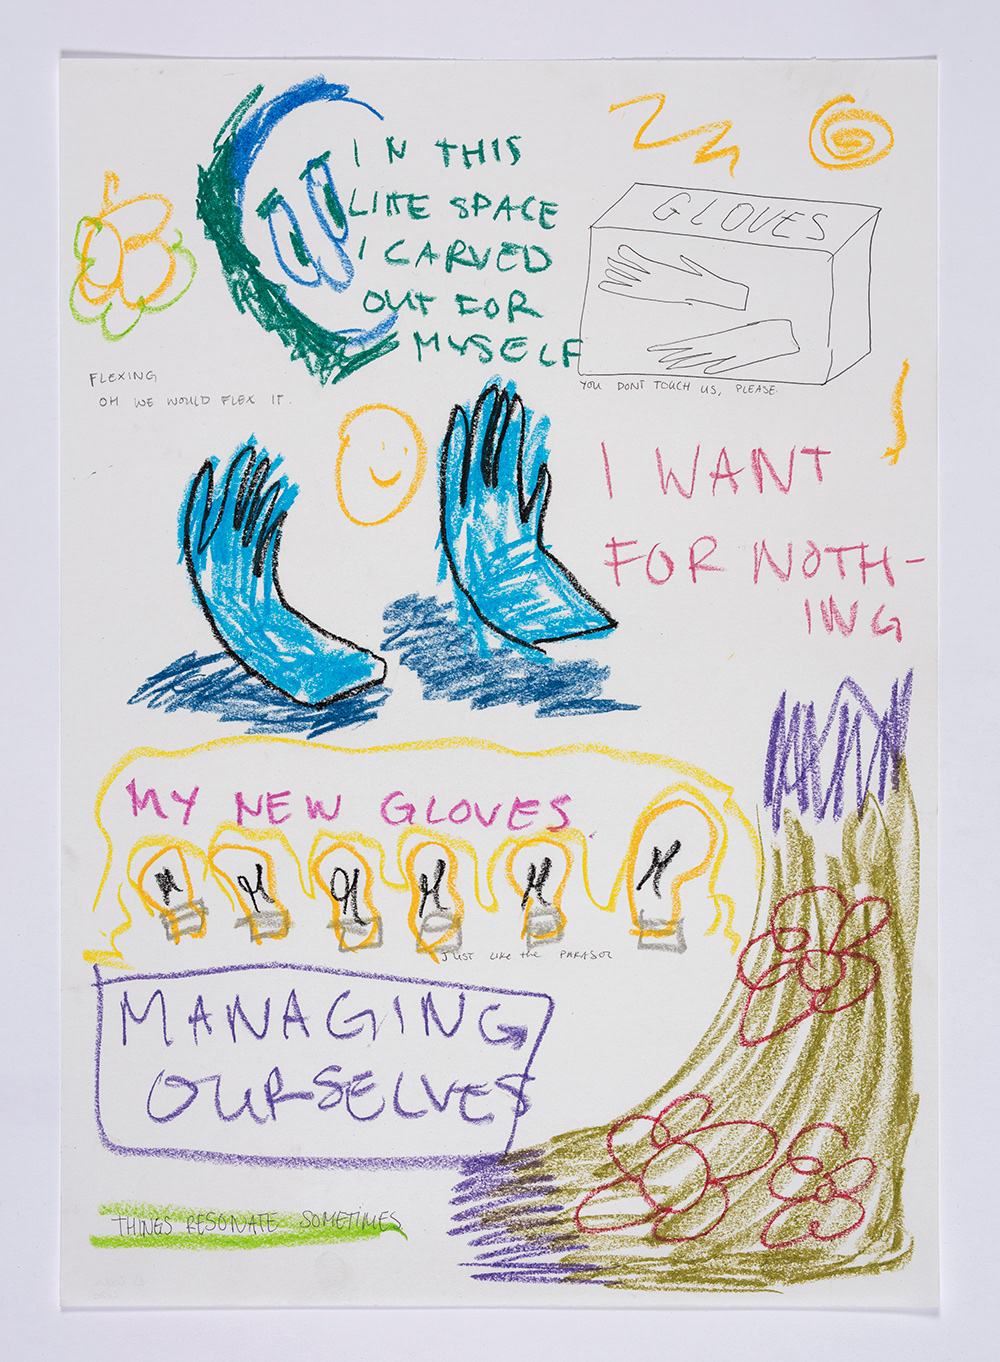 IN THIS
LIKE SPACE
I CARVED
OUT FOR
MYSELF
GLOVES
YOU DON'T TOUCH US, PLEASE.
FLEXING
OH WE WOULD FLEX IT.
I WANT
FOR NOTH-
ING
MY NEW GLOVES.
JUST LIKE the PARASOL
MANAGING
OURSELVES
THINGS RESONATE SOMETIMES